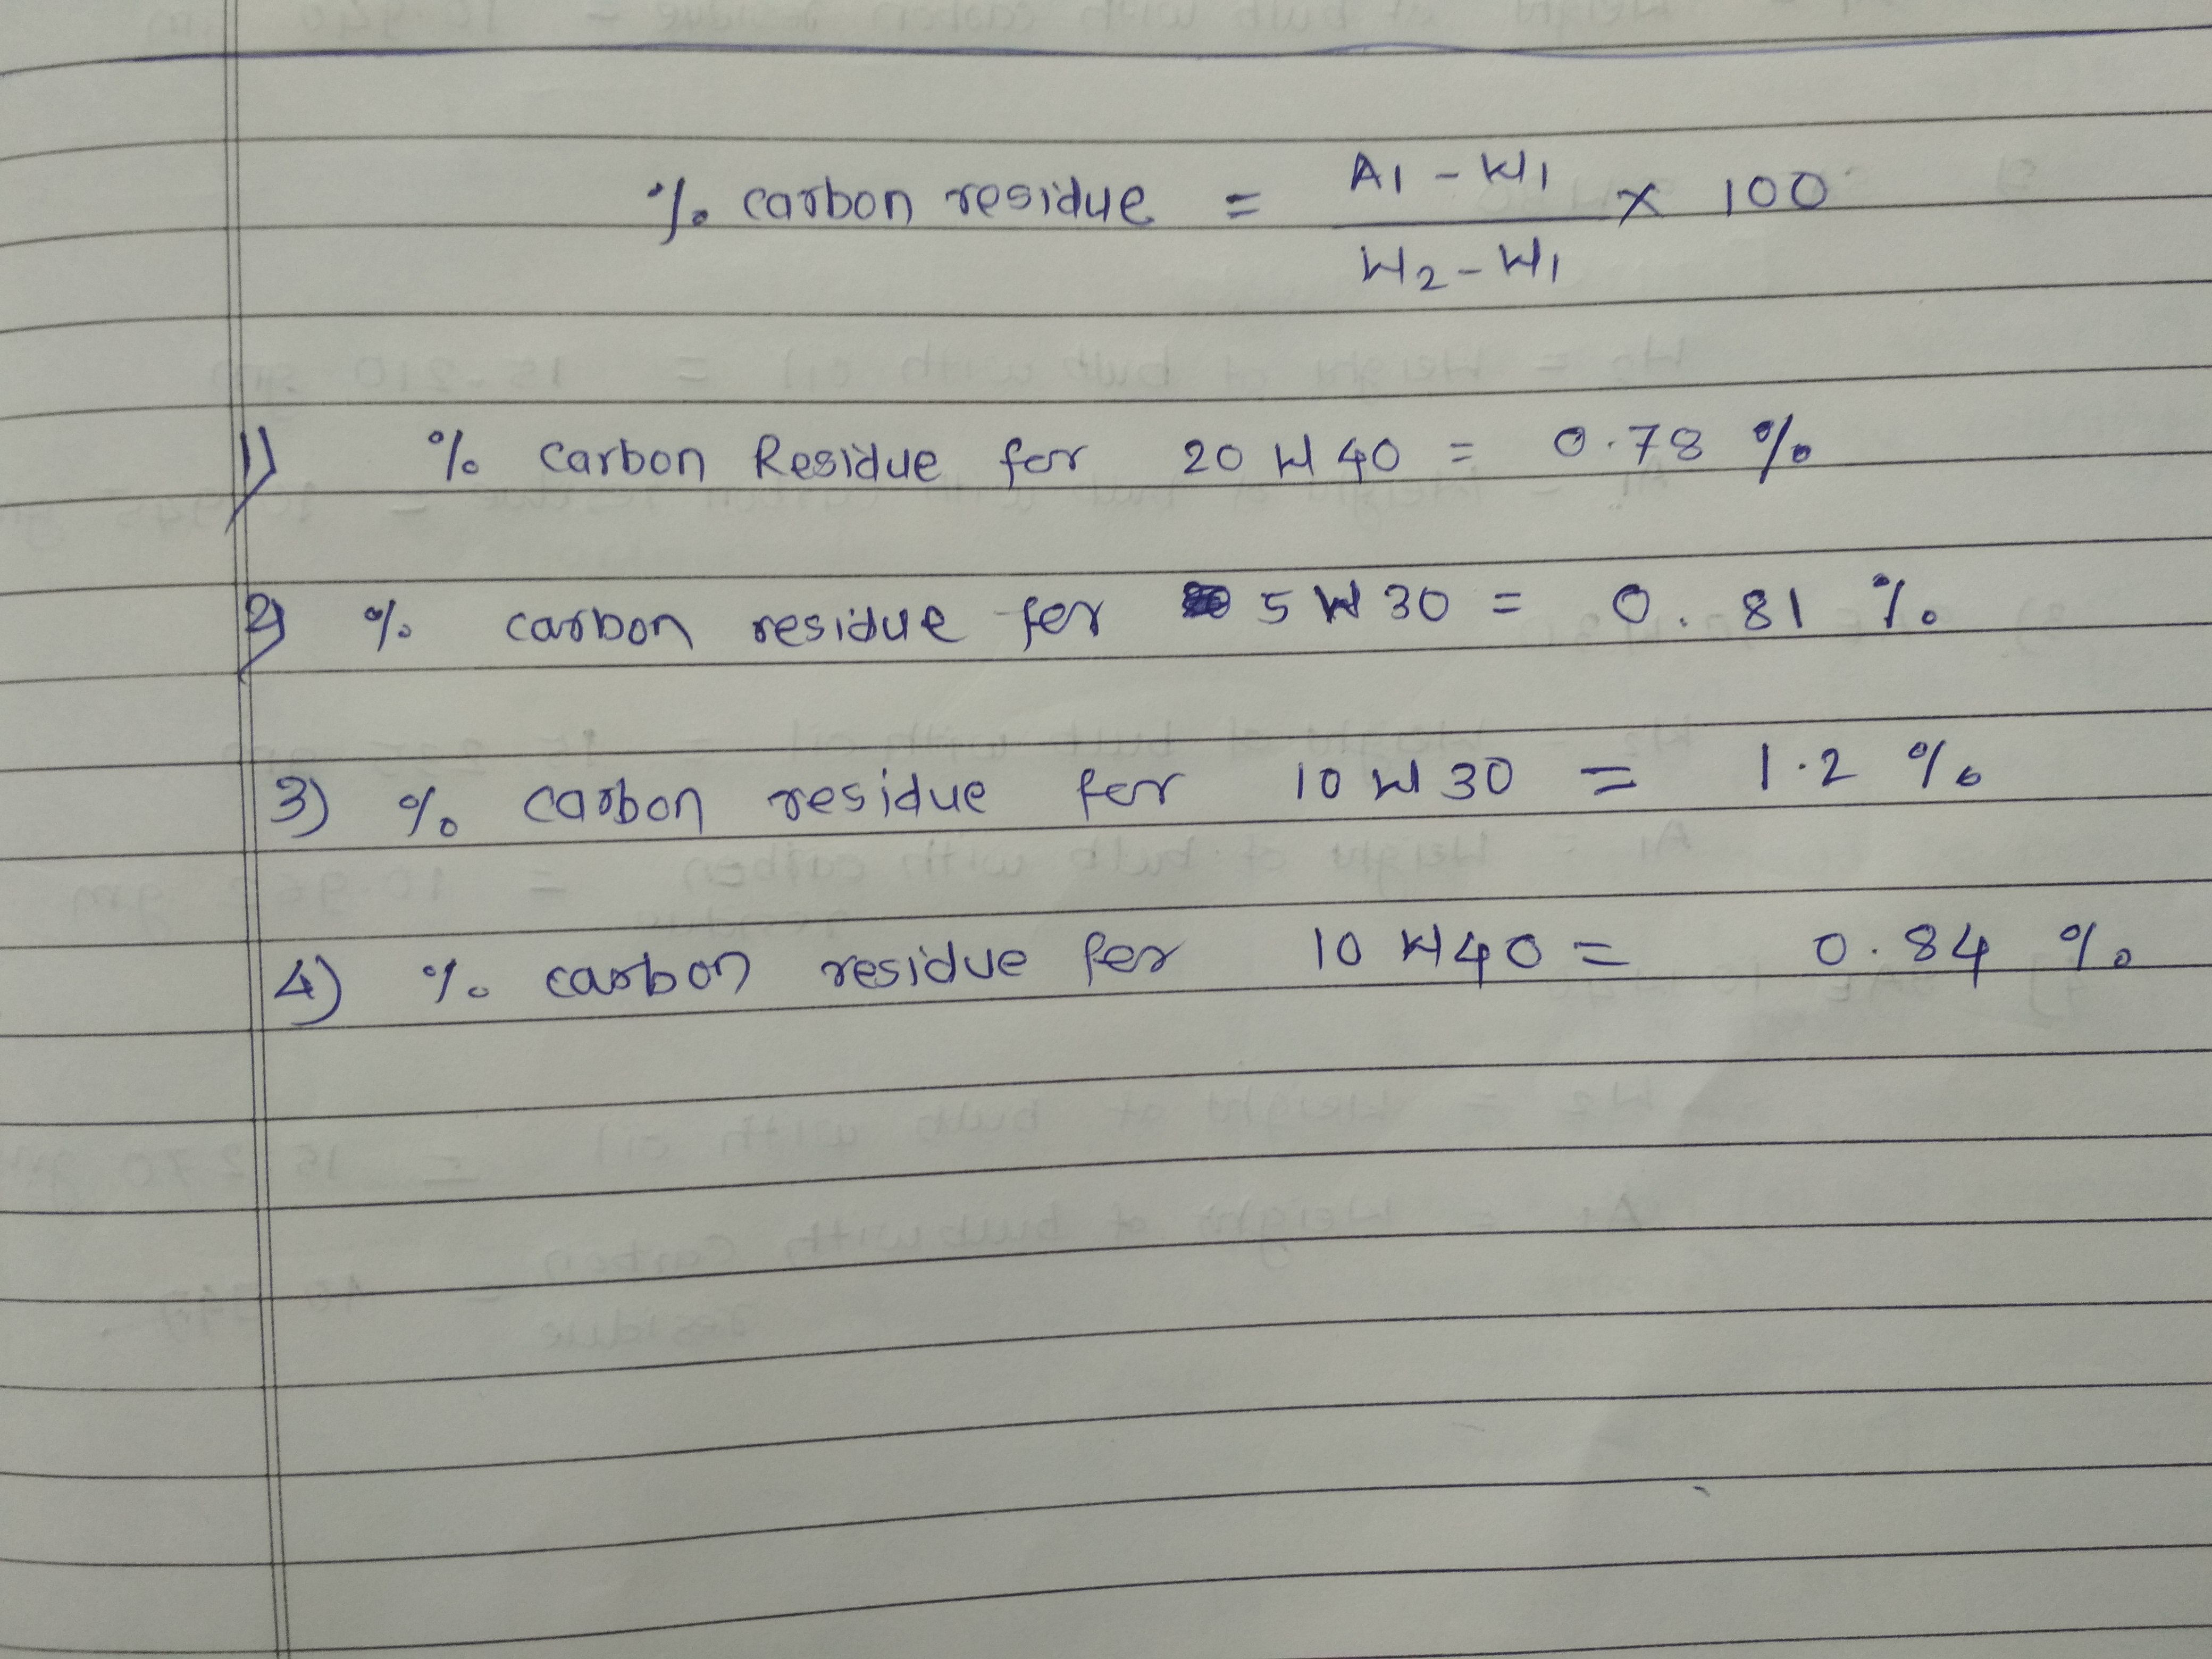 % carbon residue = A1 - W1 / W2 - W1 × 100
1) % Carbon Residue for 20 W 40 = 0.78 %
2) % carbon residue for 5 W 30 = 0.81 %
3) % carbon residue for 10 W 30 = 1.2 %
4) % carbon residue for 10 W40 = 0.84 %